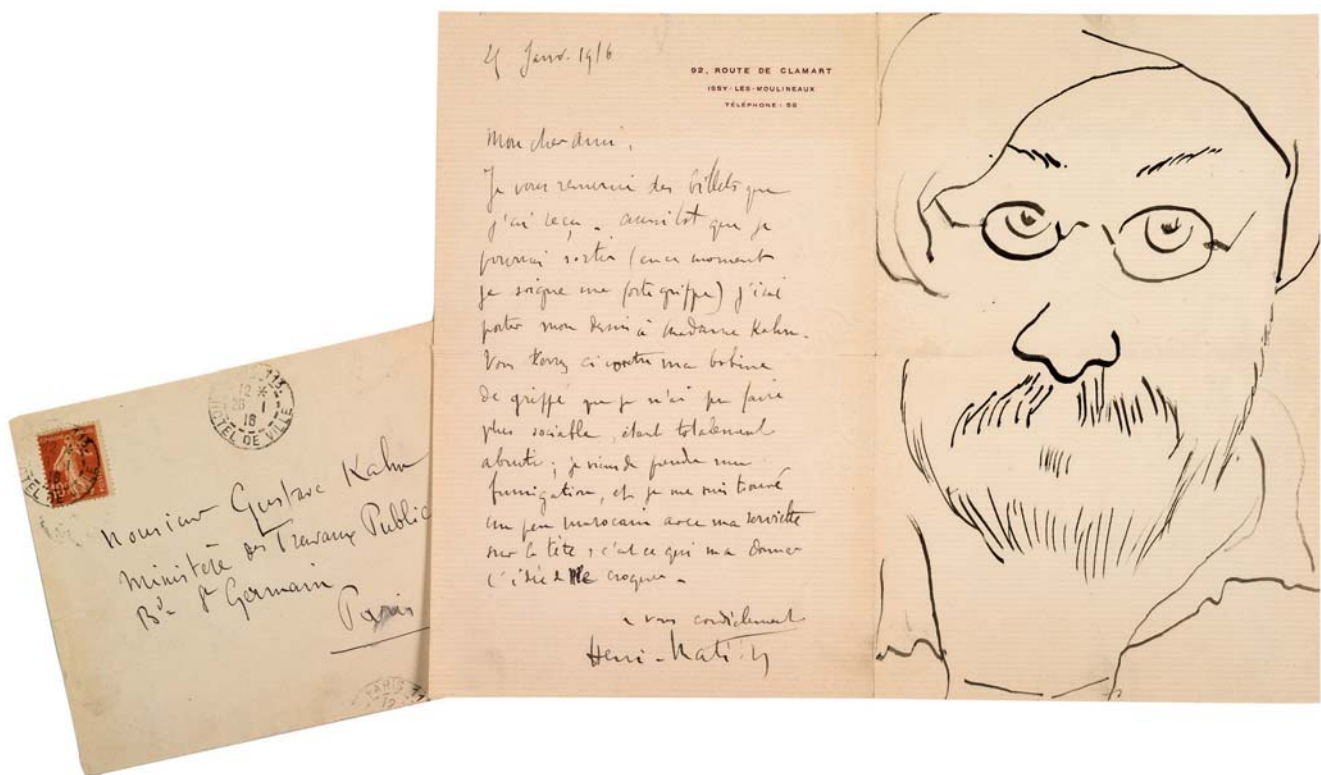 25 Janv. 1916
92, ROUTE DE CLAMART
ISSY-LES-MOULINEAUX
TÉLÉPHONE : 58
Mon cher ami,
Je vous remercie des billets que
j'ai reçu. aussitot que je
pourrai sortir (en ce moment
je soigne une forte grippe) j'irai
porter mon dessin à madame Kahn.
Vous verrez ci contre ma bobine
de grippé que je n'ai pu faire
plus sociable, étant totalement
abruti ; je viens de prendre une
fumigation, et je me suis trouvé
un peu marocain avec ma serviette
sur la tête : c'est ce qui m'a donner
l'idée de me croquer.
a vous cordialement
Henri-Matisse
HOTEL DE VILLE
Monsieur Gustave Kahn
Ministère des Travaux Public
Bd St Germain
Paris
PARIS